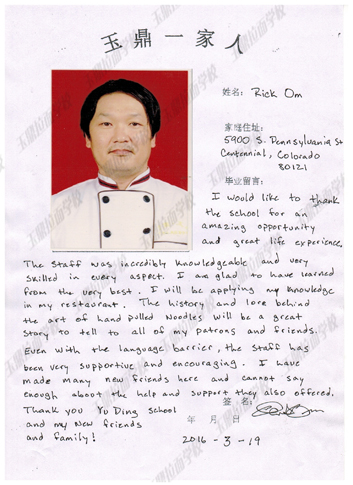 玉鼎一家人
姓名: Rick Om
家庭住址:
5900 S. Pennsylvania St
Centennial, Colorado
80121
毕业留言:
I would like to thank
the school for an
amazing opportunity
and great life experience.
The staff was incredibly knowledgeable and very
skilled in every aspect. I am glad to have learned
from the very best. I will be applying my knowledge
in my restaurant. The history and lore behind
the art of hand pulled Noodles will be a great
story to tell to all of my patrons and friends.
Even with the language barrier, the staff has
been very supportive and encouraging. I have
made many new friends here and cannot say
enough about the help and support they also offered.
Thank you Yu Ding school
and my New friends
and family!
签名:
年 月 日
2016-3-19
玉鼎拉面学校